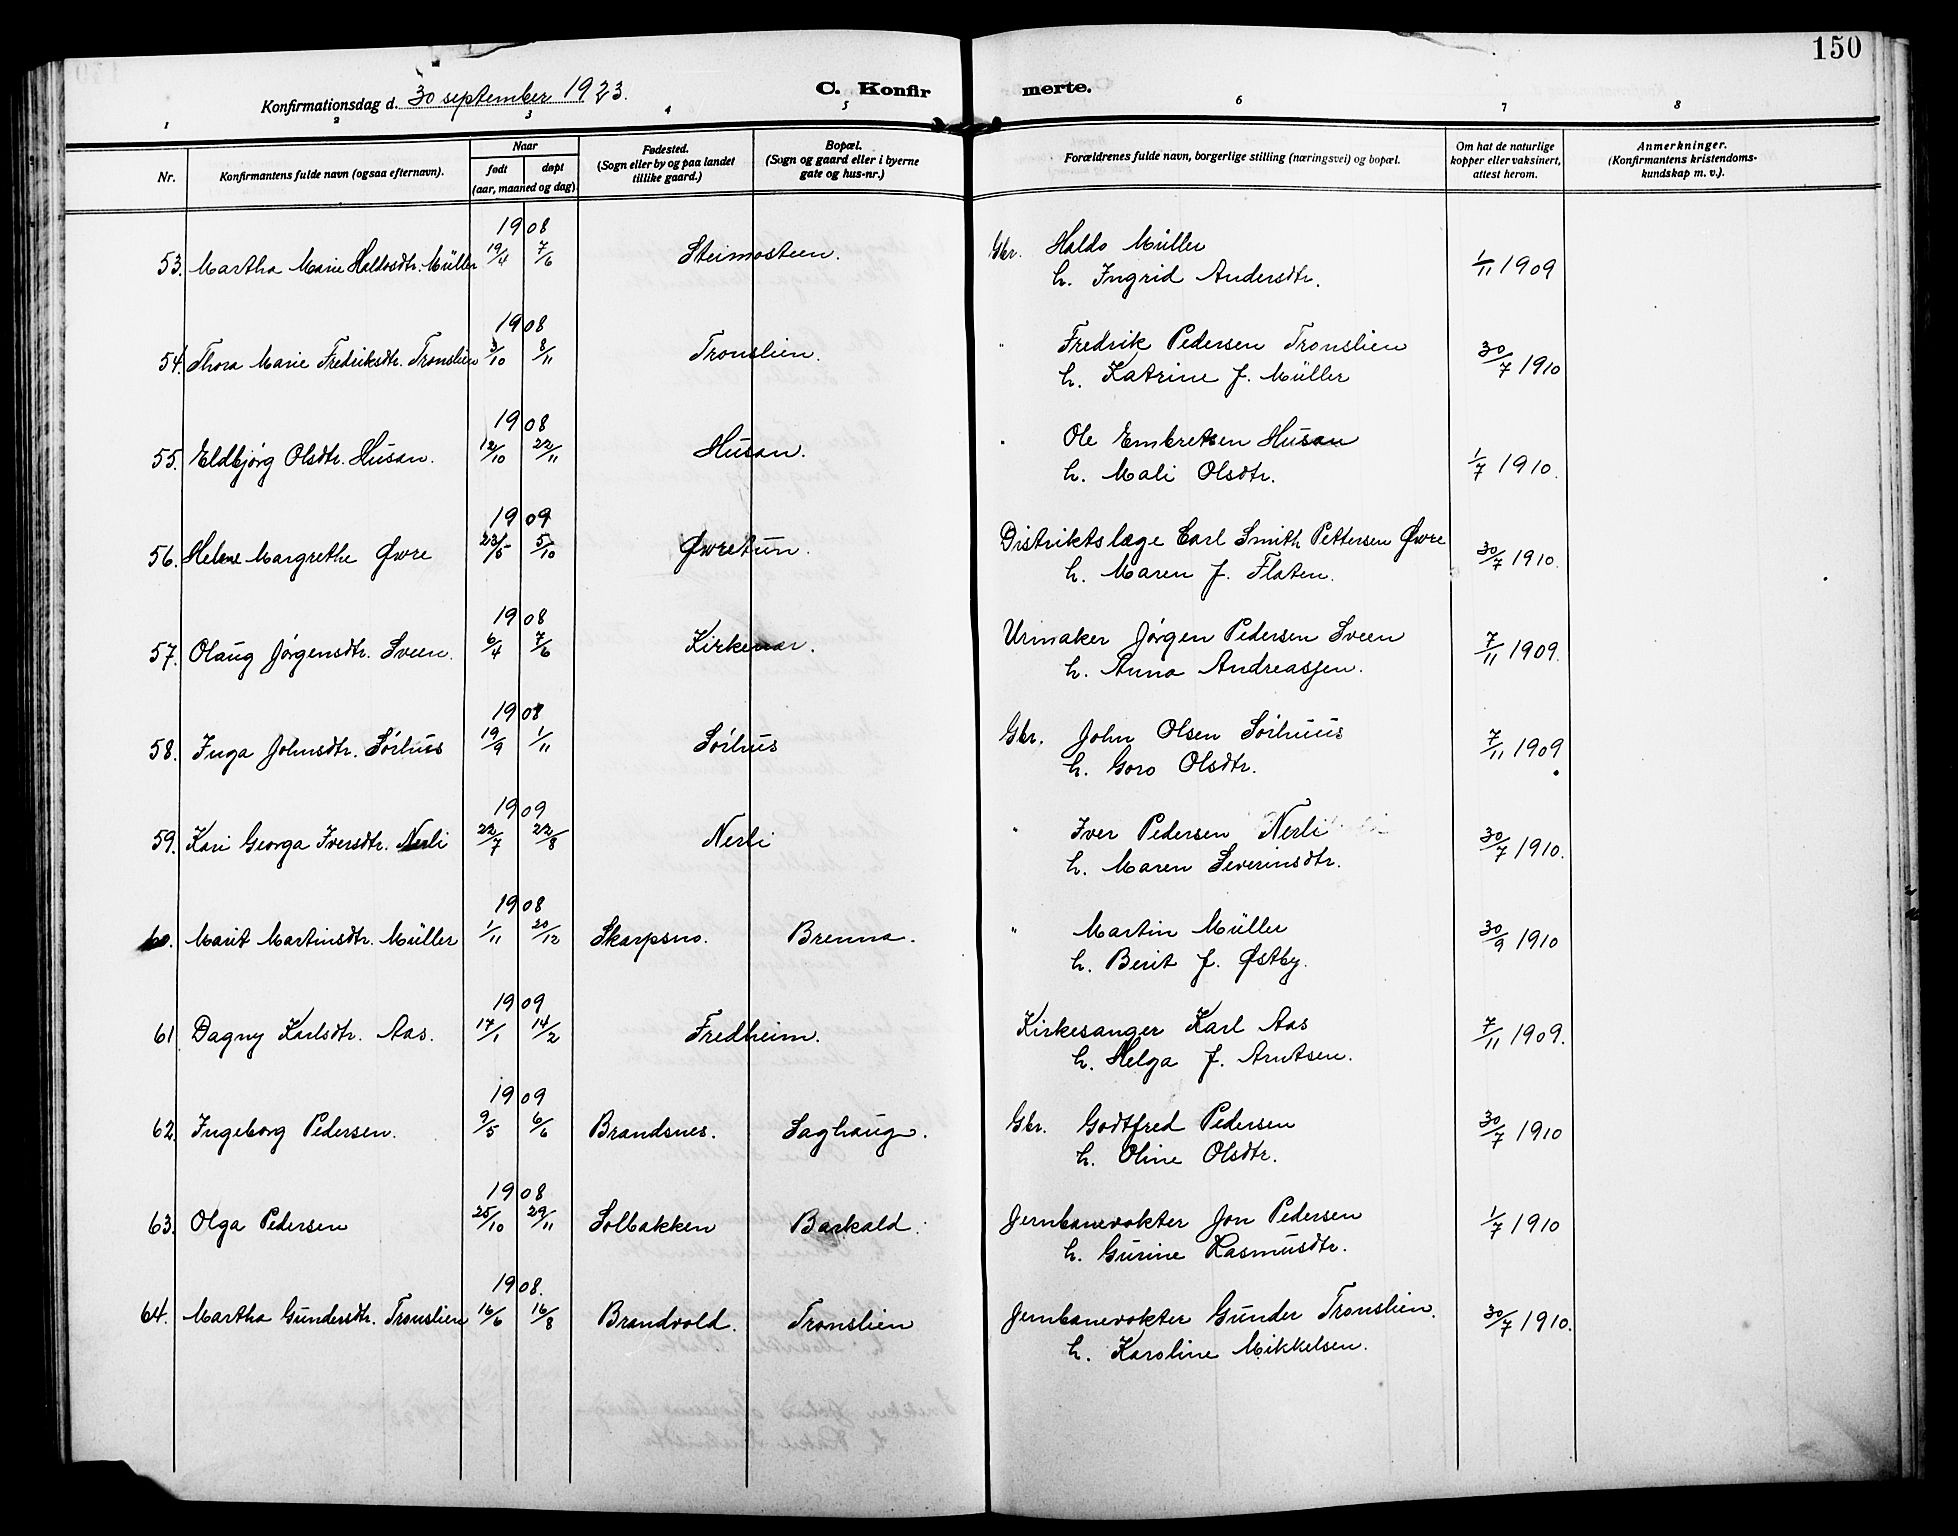 150
Konfirmationsdag d. 30 september 1923.
C. Konfirmerte.
1 2 3 4 5 6 7 8
Nr.
Konfirmantens fulde navn (ogsaa efternavn).
Naar
født døpt
(aar, maaned og dag)
Fødested.
(Sogn eller by og paa landet
tillike gaard.)
Bopæl.
(Sogn og gaard eller i byerne
gate og hus-nr.)
Forældrenes fulde navn, borgerlige stilling (næringsvei) og bopæl.
Om hat de naturlige
kopper eller vaksinert,
attest herom.
Anmerkninger.
(Konfirmantens kristendoms-
kundskap m. v.).
1908
53. Martha Marie Haldosdtr. Müller 19/4 7/6 Steimosteen. Gbr. Haldo Müller 1/11 1909
h. Ingrid Andersdtr.
1908
54. Thora Marie Fredriksdtr. Tronslien 3/10 8/11 Tronslien. " Fredrik Pedersen Tronslien 30/7 1910
h. Katrine f. Müller
1908
55. Eldbjørg Olsdtr. Husan. 12/10 22/11 Husan. " Ole Embretsen Husan 1/7 1910.
h. Mali Olsdtr.
1909
56. Helene Margrethe Øvre 23/5 5/10 Øvretun. Distriktslæge Carl Smith Pettersen Øvre 30/7 1910.
h. Maren f. Flaten.
1908
57. Olaug Jørgensdtr. Sveen. 6/4 7/6 Kirkemar. Urmaker Jørgen Pedersen Sveen 7/11 1909.
h. Anna Andreassen.
1908
58. Inga Johnsdtr. Sørhus 19/9 1/11 Sørhus Gbr. John Olsen Sørhuus 7/11 1909
h. Goro Olsdtr.
1909
59. Kari Georga Iversdtr. Nerli 22/7 22/8 Nerli " Iver Pedersen Nerli 30/7 1910.
h. Maren Severinsdtr.
1908
60. Marit Martinsdtr. Müller 1/11 20/12 Skarpsno. Brenna. " Martin Müller 30/9 1910
h. Berit f. Østby.
1909
61 Dagny Karlsdtr. Aas. 17/1 14/2 Fredheim. Kirkesanger Karl Aas 7/11 1909.
h. Helga f. Arntsen.
1909
62. Ingeborg Pedersen. 9/5 6/6 Brandsnes. Saghaug. Gbr. Godtfred Pedersen 30/7 1910
h. Oline Olsdtr.
1908
63. Olga Pedersen 25/10 29/11 Solbakken Barkald. Jernbanevokter Jon Pedersen 1/7 1910
h. Gurine Rasmusdtr.
1908.
64. Martha Gundersdtr. Tronslien 16/6 16/8 Brandvold. Tronslien Jernbanevokter Gunder Tronslien. 30/7 1910.
h. Karoline Mikkelsen.